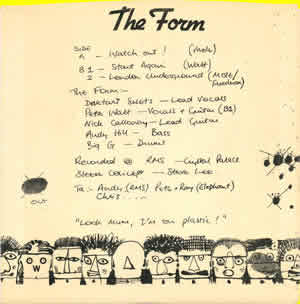 The Form
SIDE
A - Watch out! (Mole)
B1 - Start Again (Watt)
2 - London Underground (Mole/
The Form:-
Swets - Lead Vocals
Pete Watt - Vocals + Guitar (B1)
Nick Calloway - Lead Guitar
Andy Hill - Bass
Big G - Drums
Recorded @ RMS - Crystal Palace
Sleeve Concept - Steve Lee
Ta :- Andy (RMS) Pete + Ray (Elephant)
Chris....
OUT
"Look Mum, I'm on plastic!"